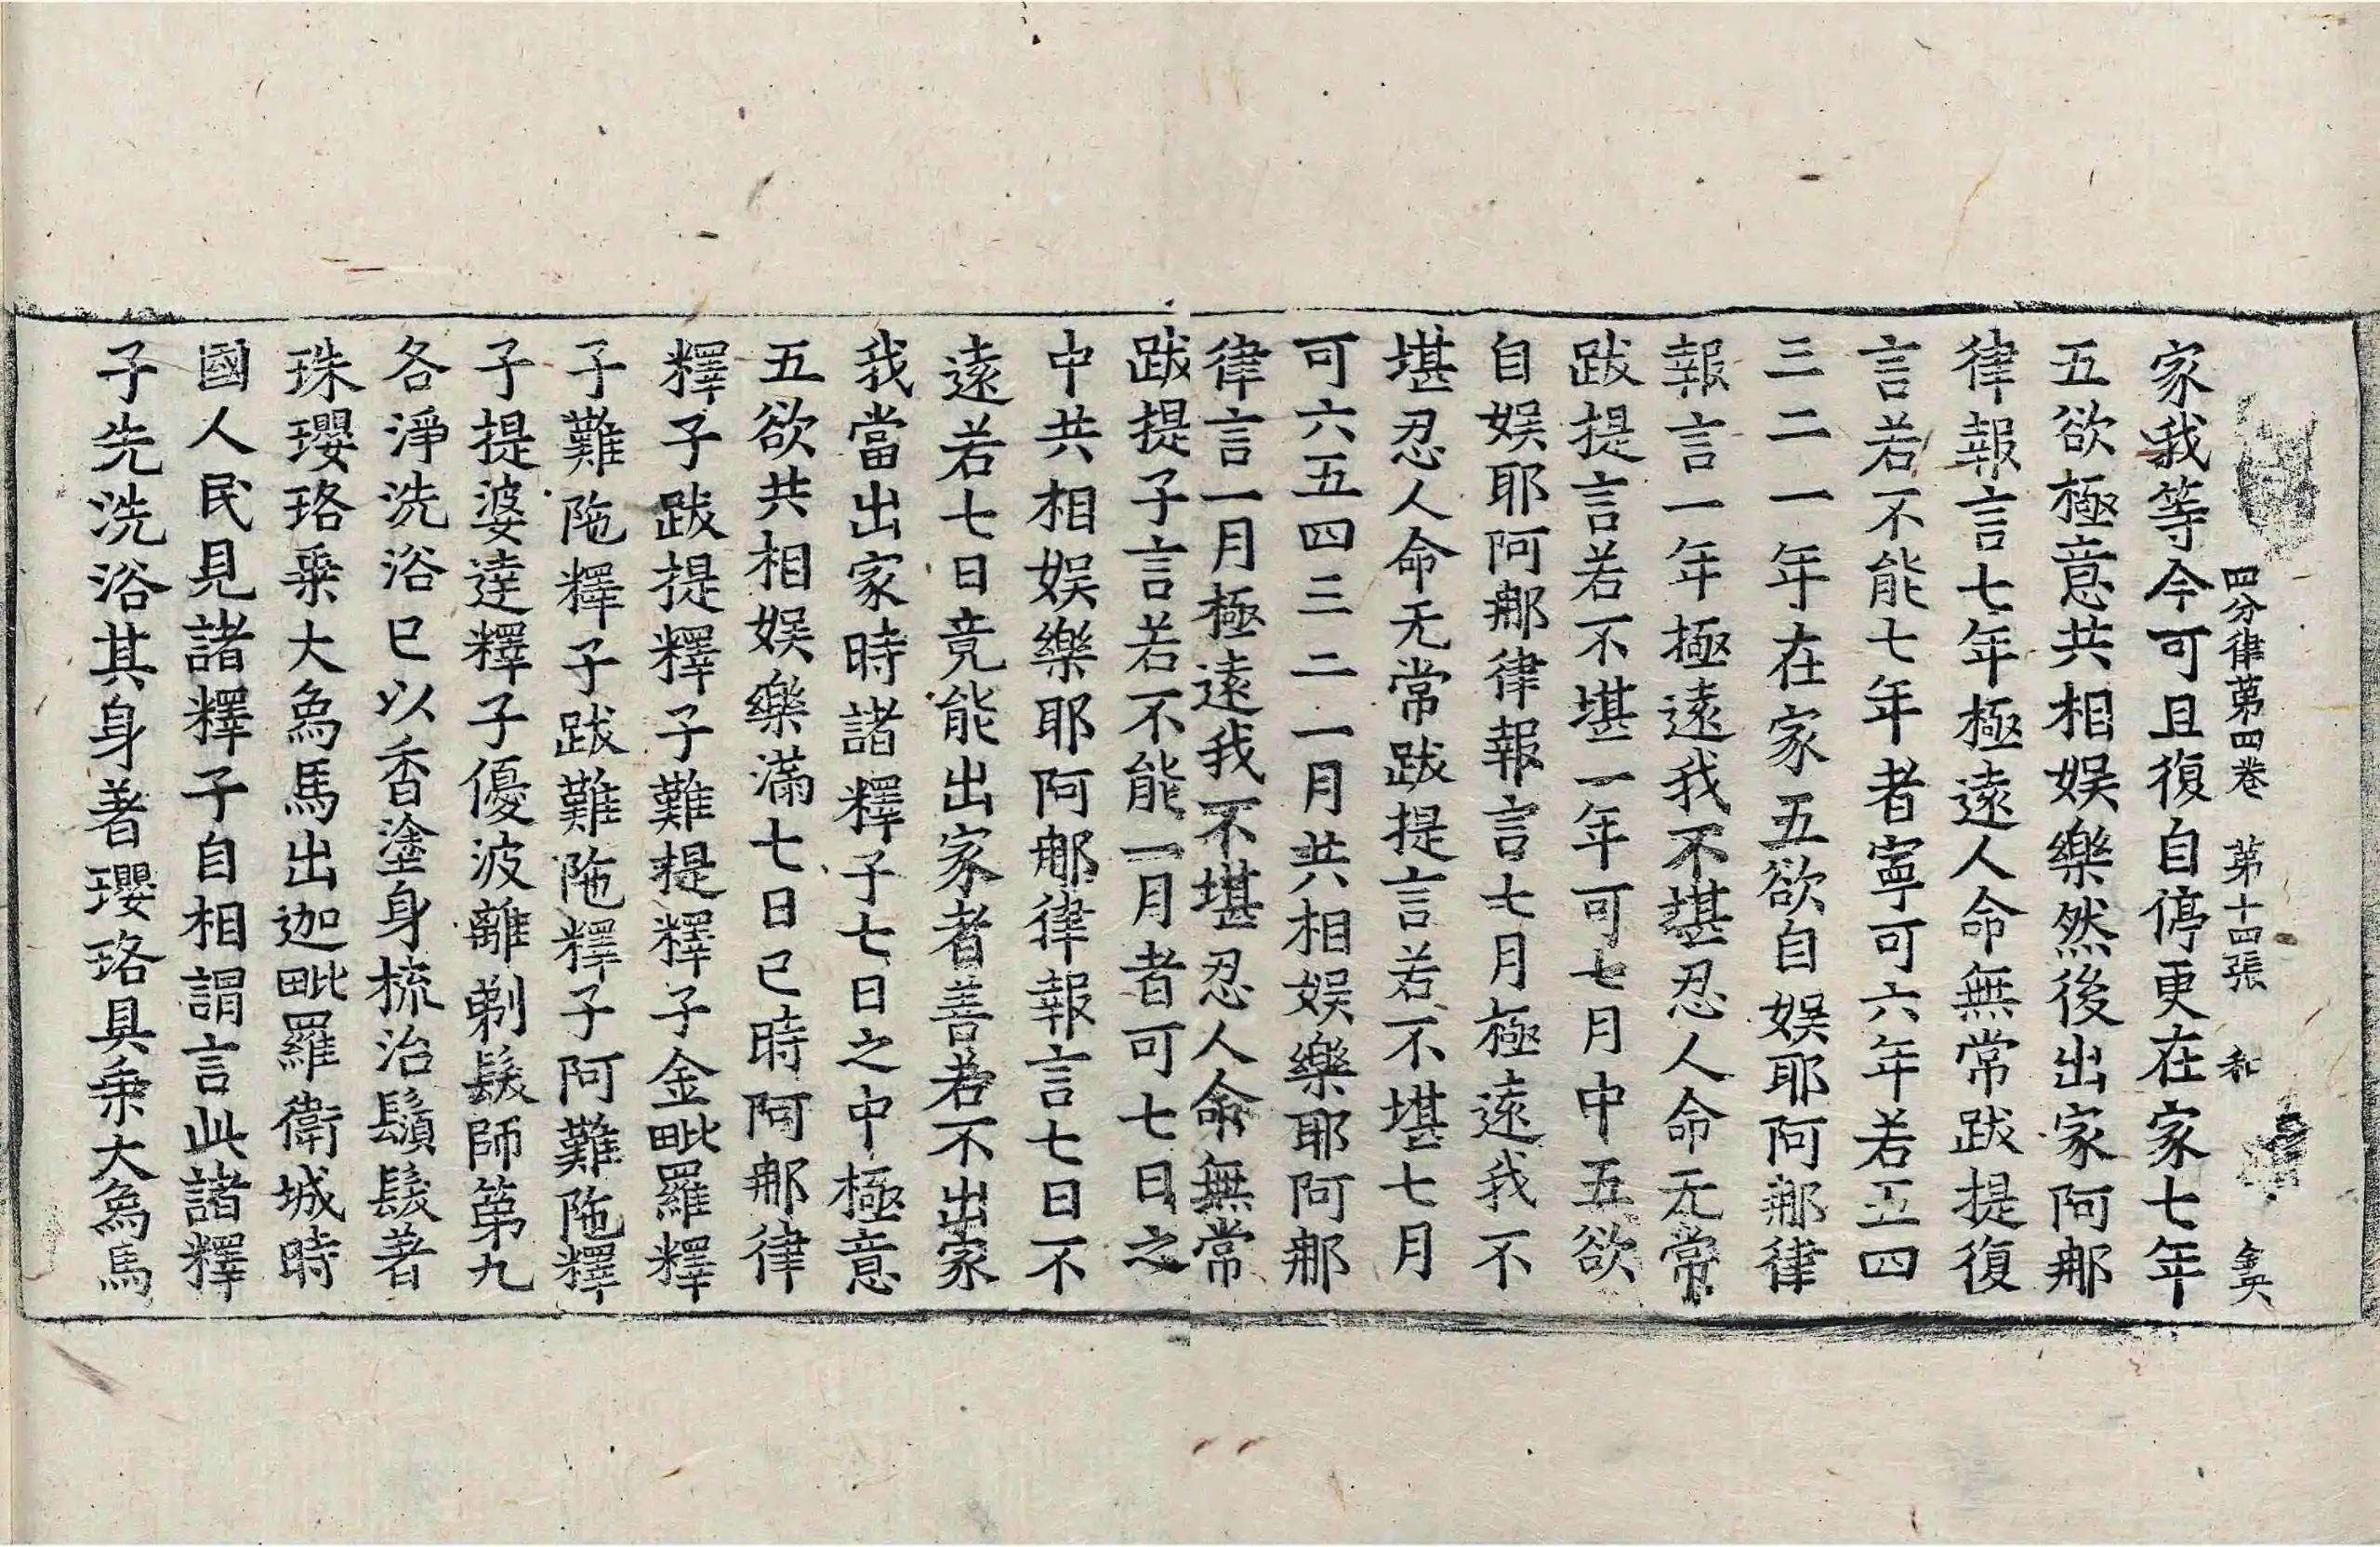 四分律第四卷 第十四張 和
家我等今可且復自停更在家七年
五欲極意共相娛樂然後出家阿那
律報言七年極遠人命無常跋提復
言若不能七年者寧可六年若五四
三二一年在家五欲自娛耶阿那律
報言一年極遠我不堪忍人命无常
跋提言若不堪一年可七月中五欲
自娛耶阿那律報言七月極遠我不
堪忍人命无常跋提言若不堪七月
可六五四三二一月共相娛樂耶阿那
律言一月極遠我不堪忍人命無常
跋提子言若不能一月者可七日之
中共相娛樂耶阿那律報言七日不
遠若七日竟能出家者善若不出家
我當出家時諸釋子七日之中極意
五欲共相娛樂滿七日已時阿那律
釋子跋提釋子難提釋子金毗羅釋
子難陁釋子跋難陁釋子阿難陁釋
子提婆達釋子優波離剃髮師第九
各淨洗浴已以香塗身梳治鬚髮著
珠瓔珞乘大象馬出迦毗羅衛城時
國人民見諸釋子自相謂言此諸釋
子先洗浴其身著瓔珞具乘大象馬